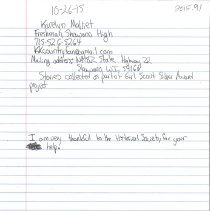 10-26-15
2015.91
Karolyn Molset
Freshman, Shawano High
715-526-5264
Mailing address: State Highway 22
Shawano WI, 54166
Stories collected as part of Girl Scout Silver Award
project
I am very thankful to the Historical Society for your
help!